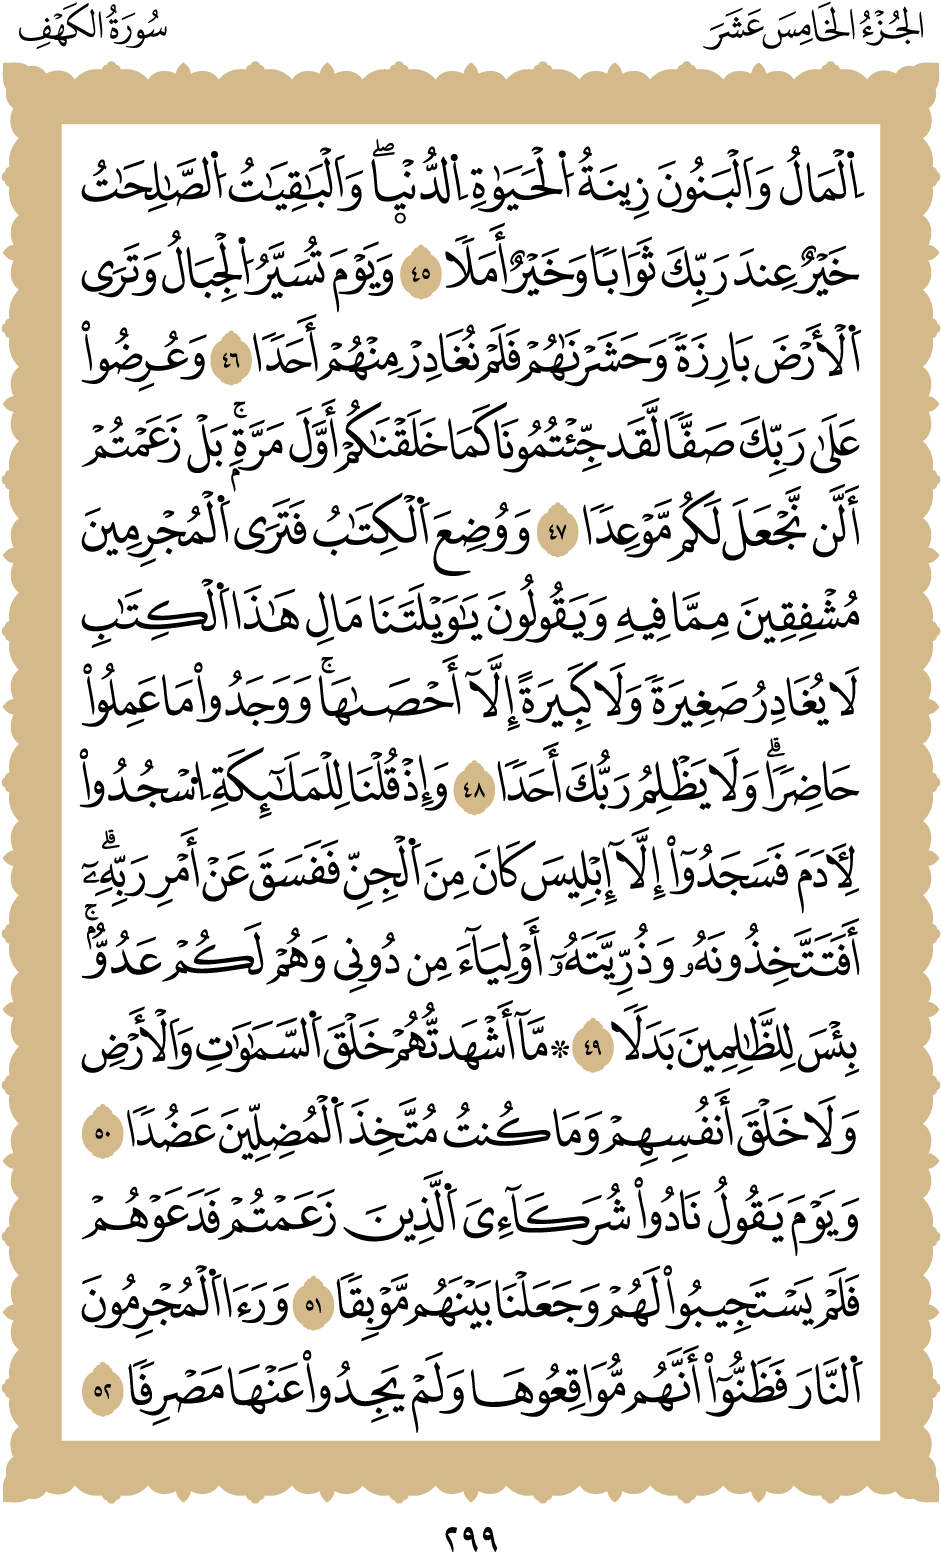 الجُزْءُ الخَامِسَ عَشَرَ
سُورَةُ الكَهْفِ
اِ۬لْمَالُ وَالْبَنُونَ زِينَةُ اُ۬لْحَيَوٰةِ اِ۬لدُّنْي۪اۖ وَالْبَٰقِيَٰتُ اُ۬لصَّٰلِحَٰتُ
خَيْرٌ عِندَ رَبِّكَ ثَوَابٗا وَخَيْرٌ أَمَلٗا ٤٥ وَيَوْمَ تُسَيَّرُ اُ۬لْجِبَالُ وَتَرَى
اَ۬لْأَرْضَ بَارِزَةٗ وَحَشَرْنَٰهُمْ فَلَمْ نُغَادِرْ مِنْهُمْ أَحَدٗا ٤٦ وَعُرِضُواْ
عَلَىٰ رَبِّكَ صَفّٗا لَّقَد جِّئْتُمُونَا كَمَا خَلَقْنَٰكُمْ أَوَّلَ مَرَّةِۢۚ بَلْ زَعَمْتُمْ
أَلَّن نَّجْعَلَ لَكُم مَّوْعِدٗا ٤٧ وَوُضِعَ اَ۬لْكِتَٰبُ فَتَرَى اَ۬لْمُجْرِمِينَ
مُشْفِقِينَ مِمَّا فِيهِ وَيَقُولُونَ يَٰوَيْلَتَنَا مَالِ هَٰذَا اَ۬لْكِتَٰبِ
لَا يُغَادِرُ صَغِيرَةٗ وَلَا كَبِيرَةً إِلَّآ أَحْصَىٰهَاۚ وَوَجَدُواْ مَا عَمِلُواْ
حَاضِرٗاۗ وَلَا يَظْلِمُ رَبُّكَ أَحَدٗا ٤٨ وَإِذْ قُلْنَا لِلْمَلَٰٓئِكَةِ اِ۟سْجُدُواْ
لِأٓدَمَ فَسَجَدُوٓاْ إِلَّآ إِبْلِيسَ كَانَ مِنَ اَ۬لْجِنِّ فَفَسَقَ عَنْ أَمْرِ رَبِّهِۦٓۗ
أَفَتَتَّخِذُونَهُۥ وَذُرِّيَّتَهُۥٓ أَوْلِيَآءَ مِن دُونِي وَهُمْ لَكُمْ عَدُوُّۢۚ
بِئْسَ لِلظَّٰلِمِينَ بَدَلٗا ٤٩ ۞ مَّآ أَشْهَدتُّهُمْ خَلْقَ اَ۬لسَّمَٰوَٰتِ وَالْأَرْضِ
وَلَا خَلْقَ أَنفُسِهِمْ وَمَا كُنتُ مُتَّخِذَ اَ۬لْمُضِلِّينَ عَضُدٗا ٥٠
وَيَوْمَ يَقُولُ نَادُواْ شُرَكَآءِيَ اَ۬لَّذِينَ زَعَمْتُمْ فَدَعَوْهُمْ
فَلَمْ يَسْتَجِيبُواْ لَهُمْ وَجَعَلْنَا بَيْنَهُم مَّوْبِقٗا ٥١ وَرَءَا اَ۬لْمُجْرِمُونَ
اَ۬لنَّارَ فَظَنُّوٓاْ أَنَّهُم مُّوَاقِعُوهَا وَلَمْ يَجِدُواْ عَنْهَا مَصْرِفٗا ٥٢
٢٩٩